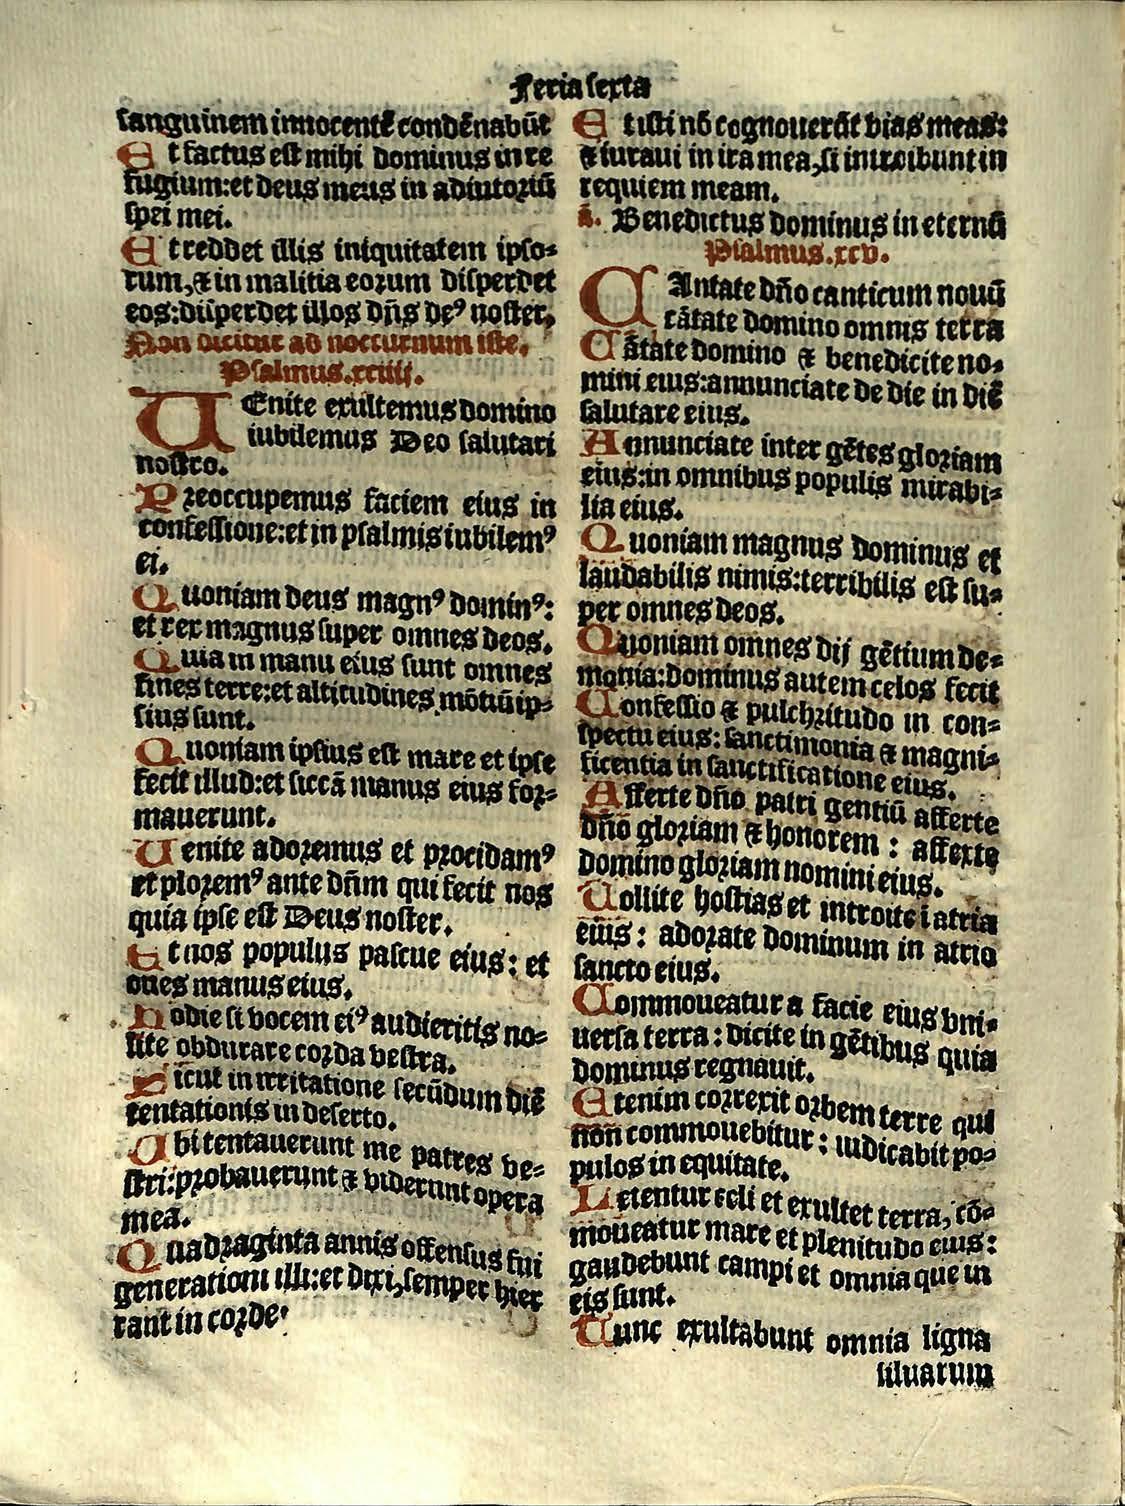 Feria sexta
sanguinem innocentē condēnabūt
Et factus est mihi dominus in re
fugium:et deus meus in adiutoriū
spei mei.
Et reddet illis iniquitatem ipso-
rum,& in malitia eorum disperdet
eos:disperdet illos dn̄s deꝰ noster,
Non dicitur ad nocturnum iste.
Psalmus.xciiij.
VEnite exultemus domino
iubilemus Deo salutari
nostro.
Preoccupemus faciem eius in
confessione:et in psalmis iubilemꝰ
ei.
Quoniam deus magnꝰ dominꝰ:
et rex magnus super omnes deos.
Quia in manu eius sunt omnes
fines terre:et altitudines mōtiū ip-
sius sunt.
Quoniam ipsius est mare et ipse
fecit illud:et siccā manus eius for-
mauerunt.
Venite adoremus et procidamꝰ
et ploremꝰ ante dn̄m qui fecit nos
quia ipse est Deus noster.
Et nos populus pascue eius: et
oues manus eius.
Hodie si vocem eiꝰ audieritis no-
lite obdurare corda vestra.
Sicut in irritatione secūdum diē
tentationis in deserto.
Vbi tentauerunt me patres ve-
stri:probauerunt & viderunt opera
mea.
Quadraginta annis offensus fui
generationi illi:et dixi,semper hi er
rant in corde.
Et isti nō cognouerūt vias meas:
& iuraui in ira mea,si introibunt in
requiem meam.
ā. Benedictus dominus in eternū
Psalmus.xcv.
CAntate dn̄o canticum nouū
cātate domino omnis terra
Cātate domino & benedicite no-
mini eius:annunciate de die in diē
salutare eius.
Annunciate inter gētes gloriam
eius:in omnibus populis mirabi-
lia eius.
Quoniam magnus dominus et
laudabilis nimis:terribilis est su-
per omnes deos.
Quoniam omnes dij gētium de-
monia:dominus autem celos fecit
Confessio & pulchritudo in con-
spectu eius: sanctimonia & magni-
ficentia in sanctificatione eius.
Afferte dn̄o patri gentiū afferte
dn̄o gloriam & honorem : afferte
domino gloriam nomini eius.
Tollite hostias et introite ī atria
eius: adorate dominum in atrio
sancto eius.
Commoueatur a facie eius vni-
uersa terra: dicite in gētibus quia
dominus regnauit.
Etenim correxit orbem terre qui
non commouebitur: iudicabit po-
pulos in equitate.
Letentur celi et exultet terra, cō-
moueatur mare et plenitudo eius:
gaudebunt campi et omnia que in
eis sunt.
Tunc exultabunt omnia ligna
siluarum